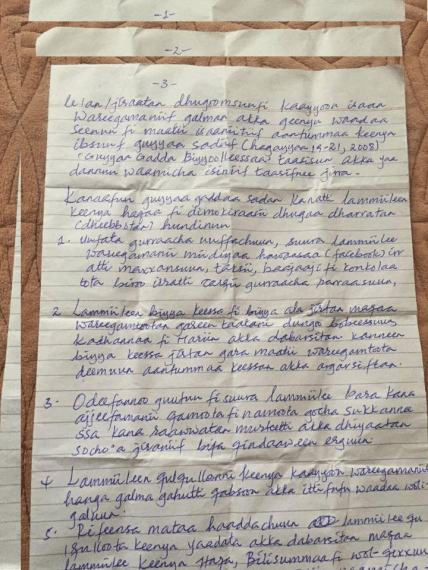 -1-
-2-
-3-
le'an/jiraatan dhugoomsuufi kaayyoon isaan
Wareegamaniif galman akka geenyu waadaa
seenuu fi maatii isaaniitiif aantummaa keenya
ibsuuf guyyaa sadiif (Hagayya 19-21, 2008)
"Guyyaa Gadda Biyyoolleessaa" taasisuu akka yaa
danuu waamicha isiniif taasifnee jirra.
Kanaafuu guyyaa gaddaa sadan kanatti lammiileen
keenya haqaa fi dimokiraasii dhugaa dharraatan
(dheebotan) hundinuu
1. Uuffata gurraacha uuffachuun, suuraa lammiilee
wareegamanii miidiyaa hawaasaa (facebook) irr
atti maxxansuun, taaksii, baajaajii fi konkolaa
tota biroo irratti carqii gurraacha
2. Lammiileen biyya keessa fi biyya ala jiran maqaa
wareegamtootan gareen taa'anii dungoo bobeessuun,
Kadhannaa fi akka dabarsitan kanneen
biyya keessa jiran gara maatii wareegamtoota
deemuun aantummaa keessan akka argarsiftan.
3. Odeeffannoo guutuu fi suuraa lammiilee bara kana
ajjeefamanii Gamoota fi namoota gocha sukkanne
ssa kana raawwatan murteetti akka dhiyaatan
socho'a jiraniif bifa gindaaween erguun
4. Lammiileen qulqulloonni keenya kaayyoon wareegamaniif
hanga galma gahutti qabsoo akka itti fufnu waadaa wali-
galuun.
5. Rifeensa mataa haaddachuun lammiilee qu
lqulloota keenya yaadala akka dabarsitan maqaa
lammiilee keenya Haqa, Bilisummaa fi